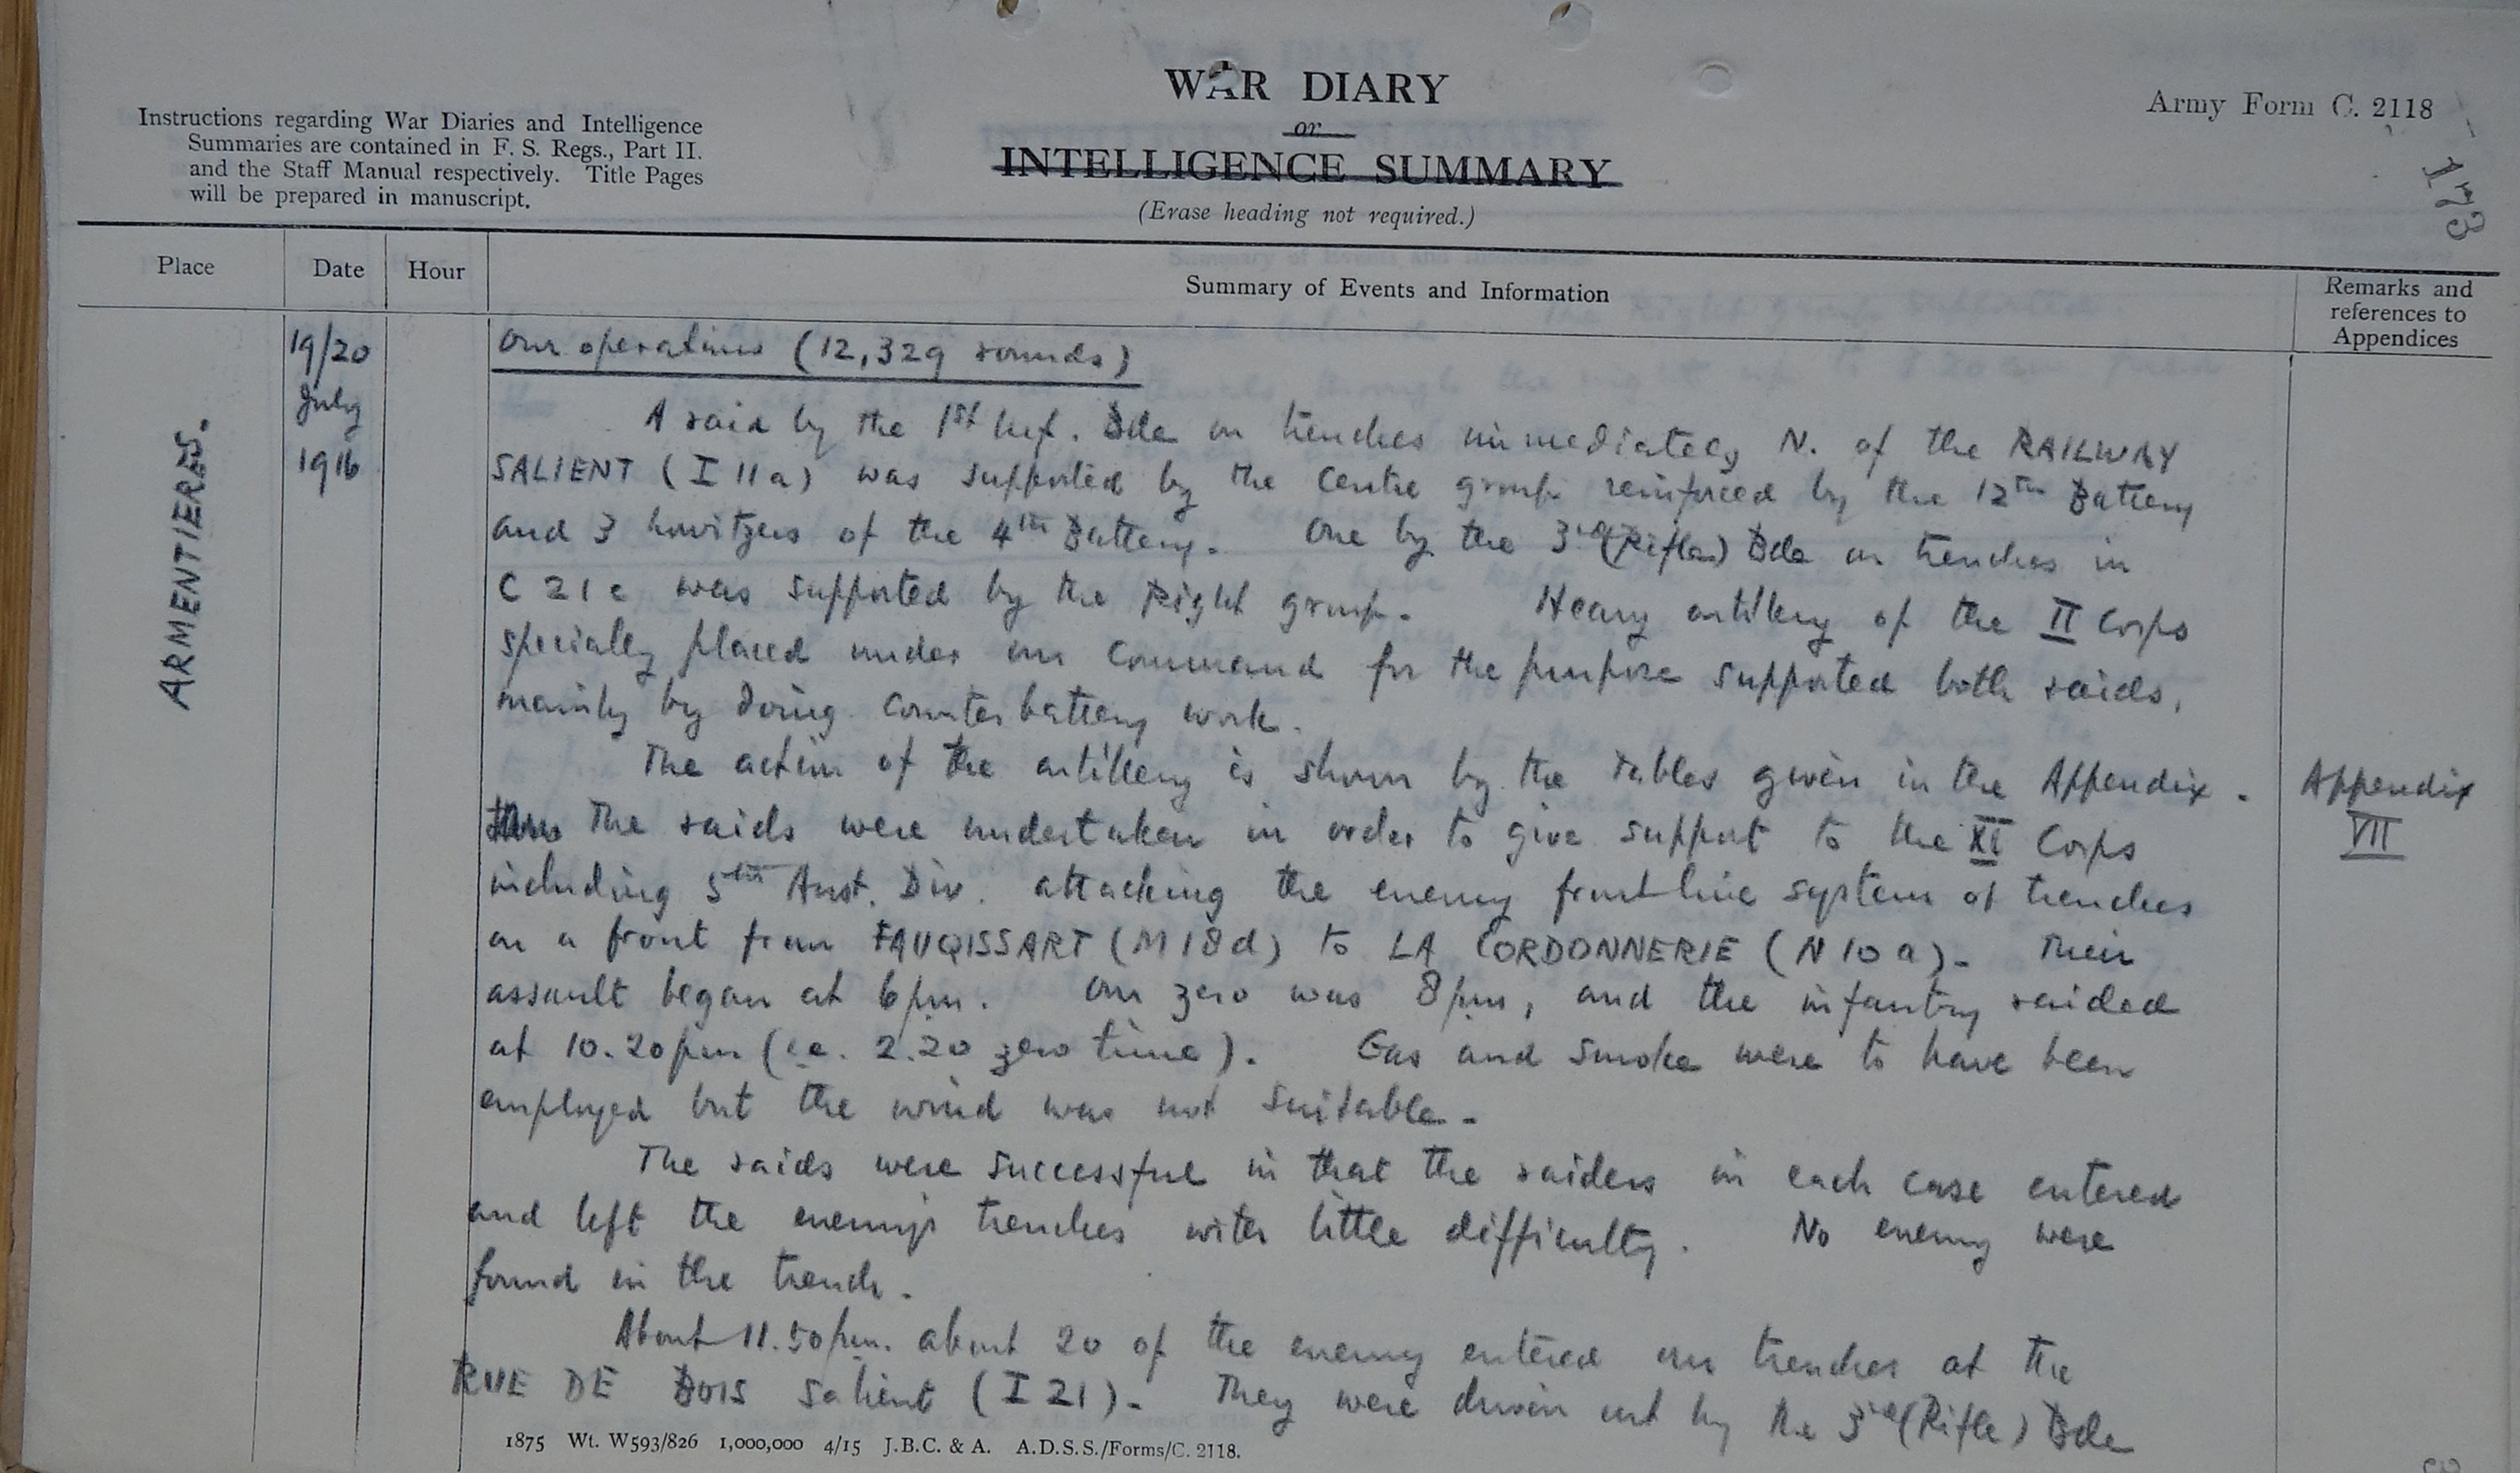 WAR DIARY
or
INTELLIGENCE SUMMARY
(Erase heading not required.)
Army Form C. 2118
173
Instructions regarding War Diaries and Intelligence
Summaries are contained in F. S. Regs., Part II.
and the Staff Manual respectively. Title Pages
will be prepared in manuscript.
Place
Date
Hour
Summary of Events and Information
Remarks and
references to
Appendices
ARMENTIERES.
19/20
July
1916
Our operations (12,329 rounds)
A raid by the 1st Inf. Bde on trenches immediately N. of the RAILWAY
SALIENT (I 11a) was supported by the Centre group reinforced by the 12th Battery
and 3 howitzers of the 4th Battery. One by the 3rd (Rifle) Bde on trenches in
C 21c was supported by the Right group. Heavy artillery of the II Corps
specially placed under our command for the purpose supported both raids,
mainly by doing counter battery work.
The action of the artillery is shown by the tables given in the Appendix.
The raids were undertaken in order to give support to the XI Corps
including 5th Aust. Div. attacking the enemy front line system of trenches
on a front from FAUQISSART (M18d) to LA CORDONNERIE (N10a). Their
assault began at 6pm. Our zero was 8pm, and the infantry raided
at 10.20pm (i.e. 2.20 zero time). Gas and smoke were to have been
employed but the wind was not suitable.
The raids were successful in that the raiders in each case entered
and left the enemy's trenches with little difficulty. No enemy were
found in the trench.
About 11.50pm. about 20 of the enemy entered our trenches at the
RUE DE BOIS salient (I 21). They were driven out by the 3rd (Rifle) Bde
Appendix
VII
1875 Wt. W593/826 1,000,000 4/15 J.B.C. & A. A.D.S.S./Forms/C. 2118.